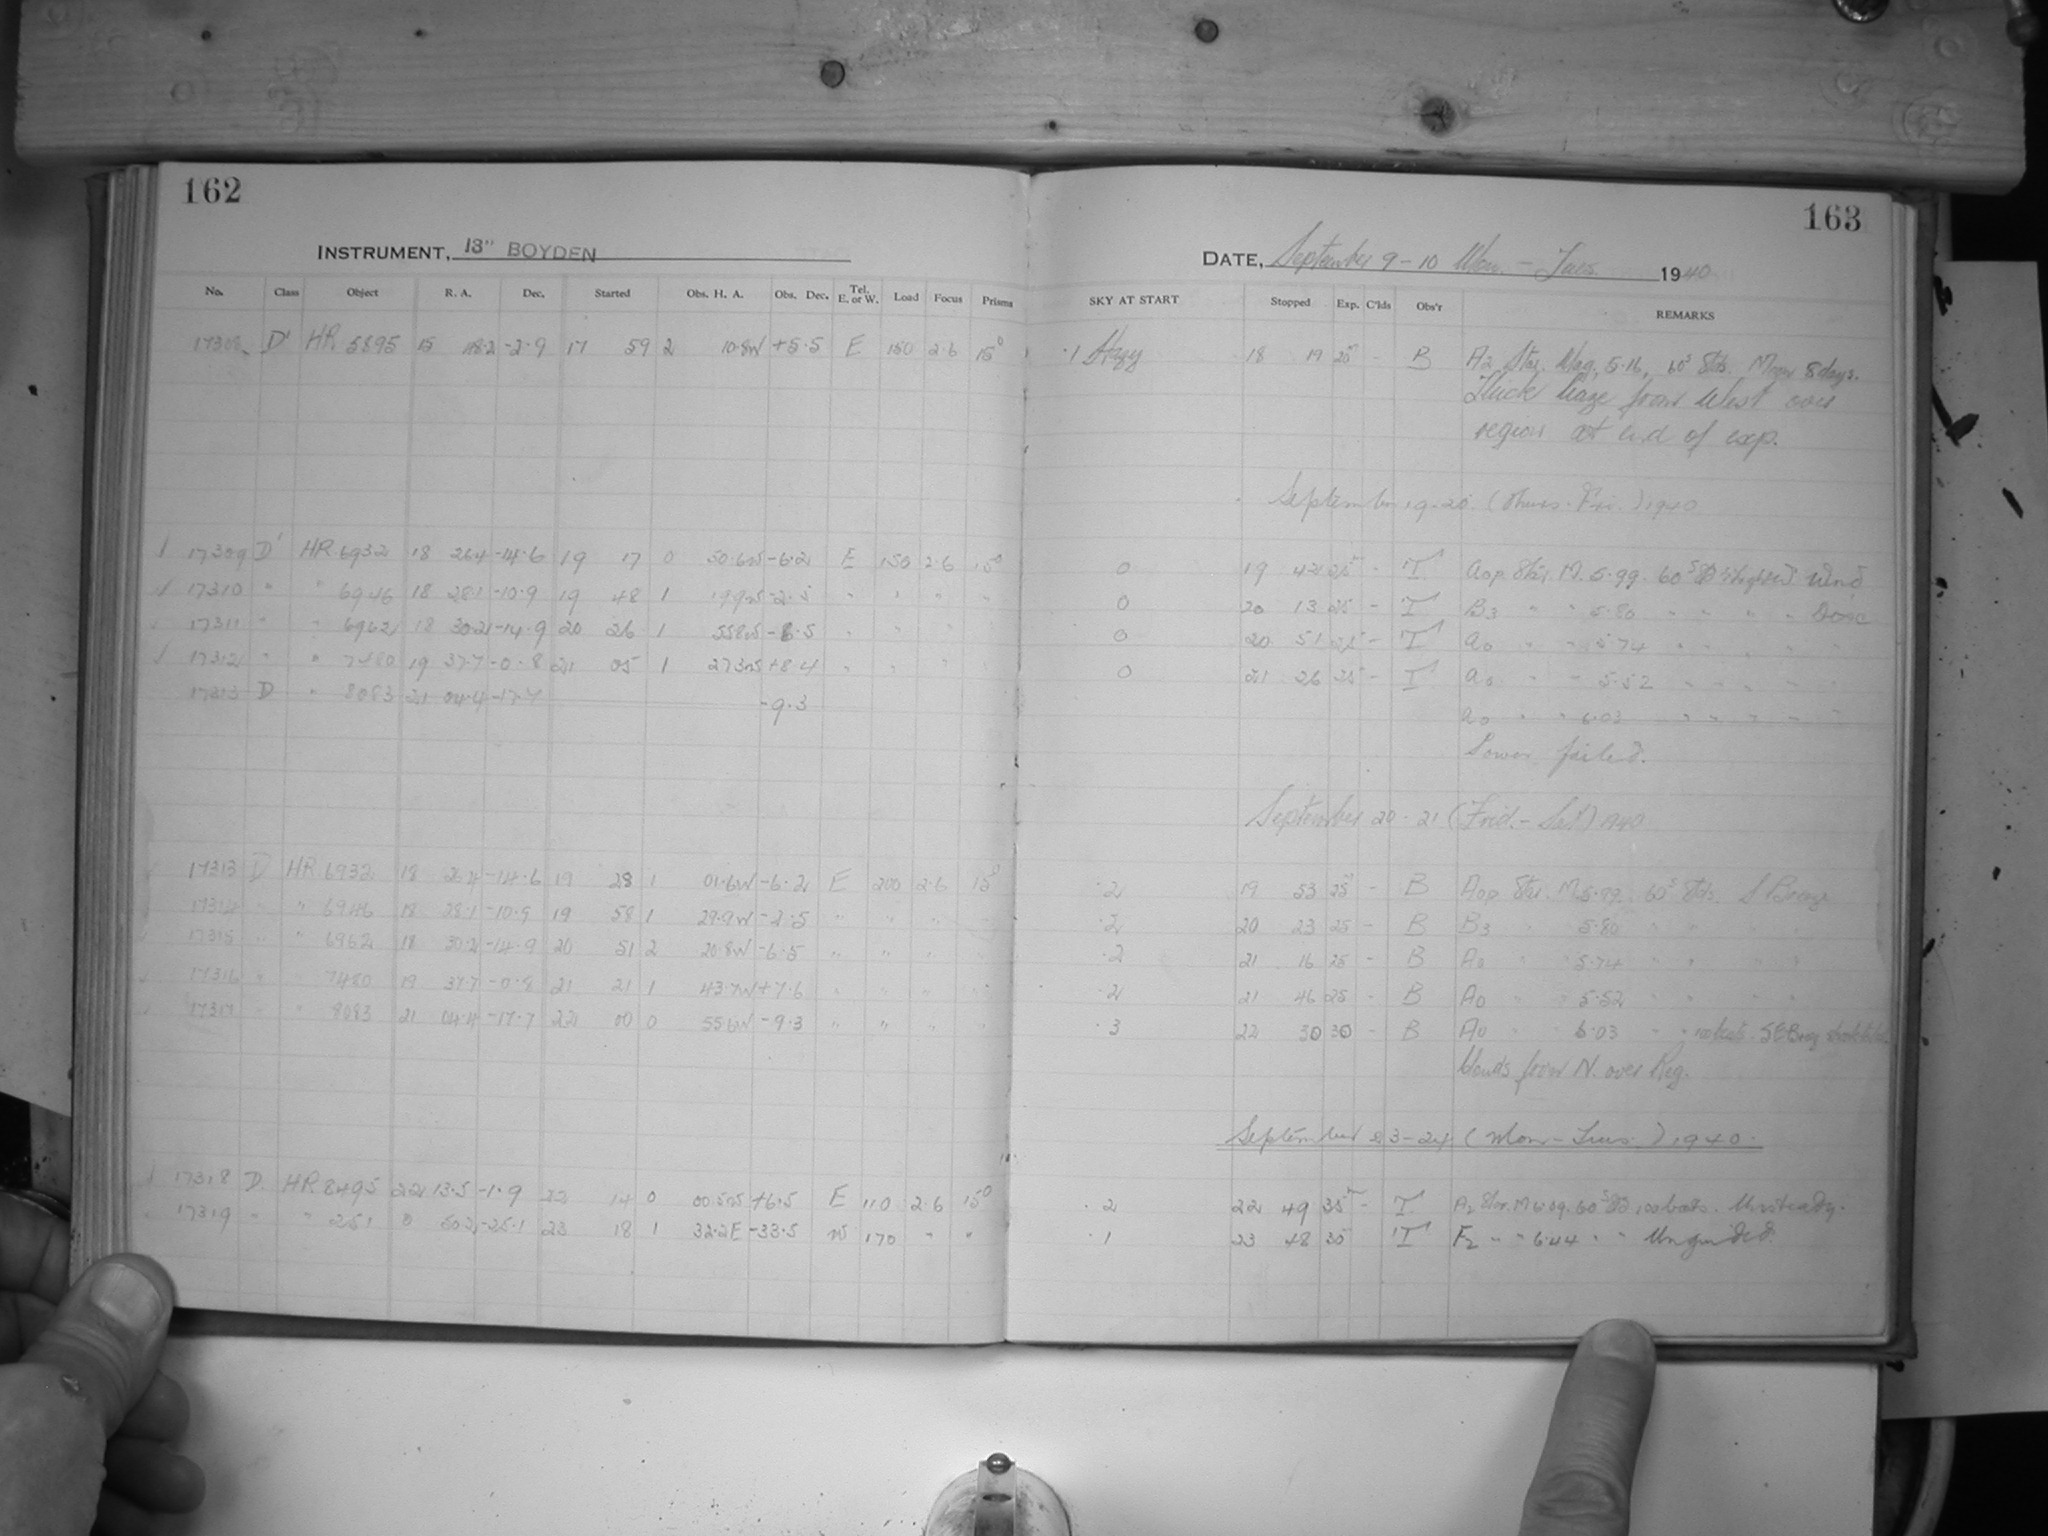 162
INSTRUMENT, 13" BOYDEN
No. Class Object R. A. Dec. Started Obs. H. A. Obs. Dec. Tel. E. or W. Load Focus Prisms
17308 D' HR 5895 15 48.2 -2.9 17 59 2 10.8W +5.5 E 150 2.6 15°
17309 D' HR 6932 18 26.4 -14.6 19 17 0 50.6W -6.2 E 150 2.6 15°
17310 " " 6946 18 28.1 -10.9 19 48 1 19.9W -2.5 " " " "
17311 " " 6962 18 30.2 -14.9 20 26 1 55.8W -6.5 " " " "
17312 " " 7480 19 37.7 -0.8 21 05 1 27.3W +8.4 " " " "
17313 D " 8083 21 04.4 -17.7 -9.3
17313 D HR 6932 18 26.4 -14.6 19 28 1 01.6W -6.2 E 200 2.6 15°
17314 " " 6946 18 28.1 -10.9 19 58 1 29.9W -2.5 " " " "
17315 " " 6962 18 30.2 -14.9 20 51 2 20.8W -6.5 " " " "
17316 " " 7480 19 37.7 -0.8 21 21 1 43.7W +7.6 " " " "
17317 " " 8083 21 04.4 -17.7 22 00 0 55.6W -9.3 " " " "
17318 D HR 8495 22 13.5 -1.9 22 14 0 00.5W +6.5 E 110 2.6 15°
17319 " " 251 0 50.2 -25.1 23 18 1 32.2E -33.5 W 170 " "
163
DATE, September 9-10 Mon. - Tues. 1940
SKY AT START Stopped Exp. C'lds Obs'r REMARKS
.1 Hazy 18 19 20m - B A2 Star. Mag. 5.16, 60s Stds. Moon 8 days.
Thick haze from West over
region at end of exp.
September 19-20. (Thurs. Fri.) 1940
0 19 42 25m - T A0p Star M. 5.99. 60s Wind
0 20 13 25 - T B3 " " 5.80 " " " "
0 20 51 25 - T A0 " " 5.74 " " " "
0 21 26 25 - T A0 " " 5.52 " " " "
A0 " " 6.03 " " " "
Power failed.
September 20-21 (Frid. - Sat) 1940
.2 19 53 25m - B A0p Star. M 5.99. 60s Stds. S Breeze
.2 20 23 25 - B B3 " 5.80 " " "
.2 21 16 25 - B A0 " 5.74 " " "
.2 21 46 25 - B A0 " 5.52 " " "
.3 22 30 30 - B A0 " 6.03 " " SE Breeze
Clouds from N. over Reg.
September 23-24 (Mon - Tues.) 1940.
.2 22 49 35m - T A2 Star. M 6.09. 60s Unsteady.
.1 23 48 30 T F2 " " 6.44 " " Unguided.